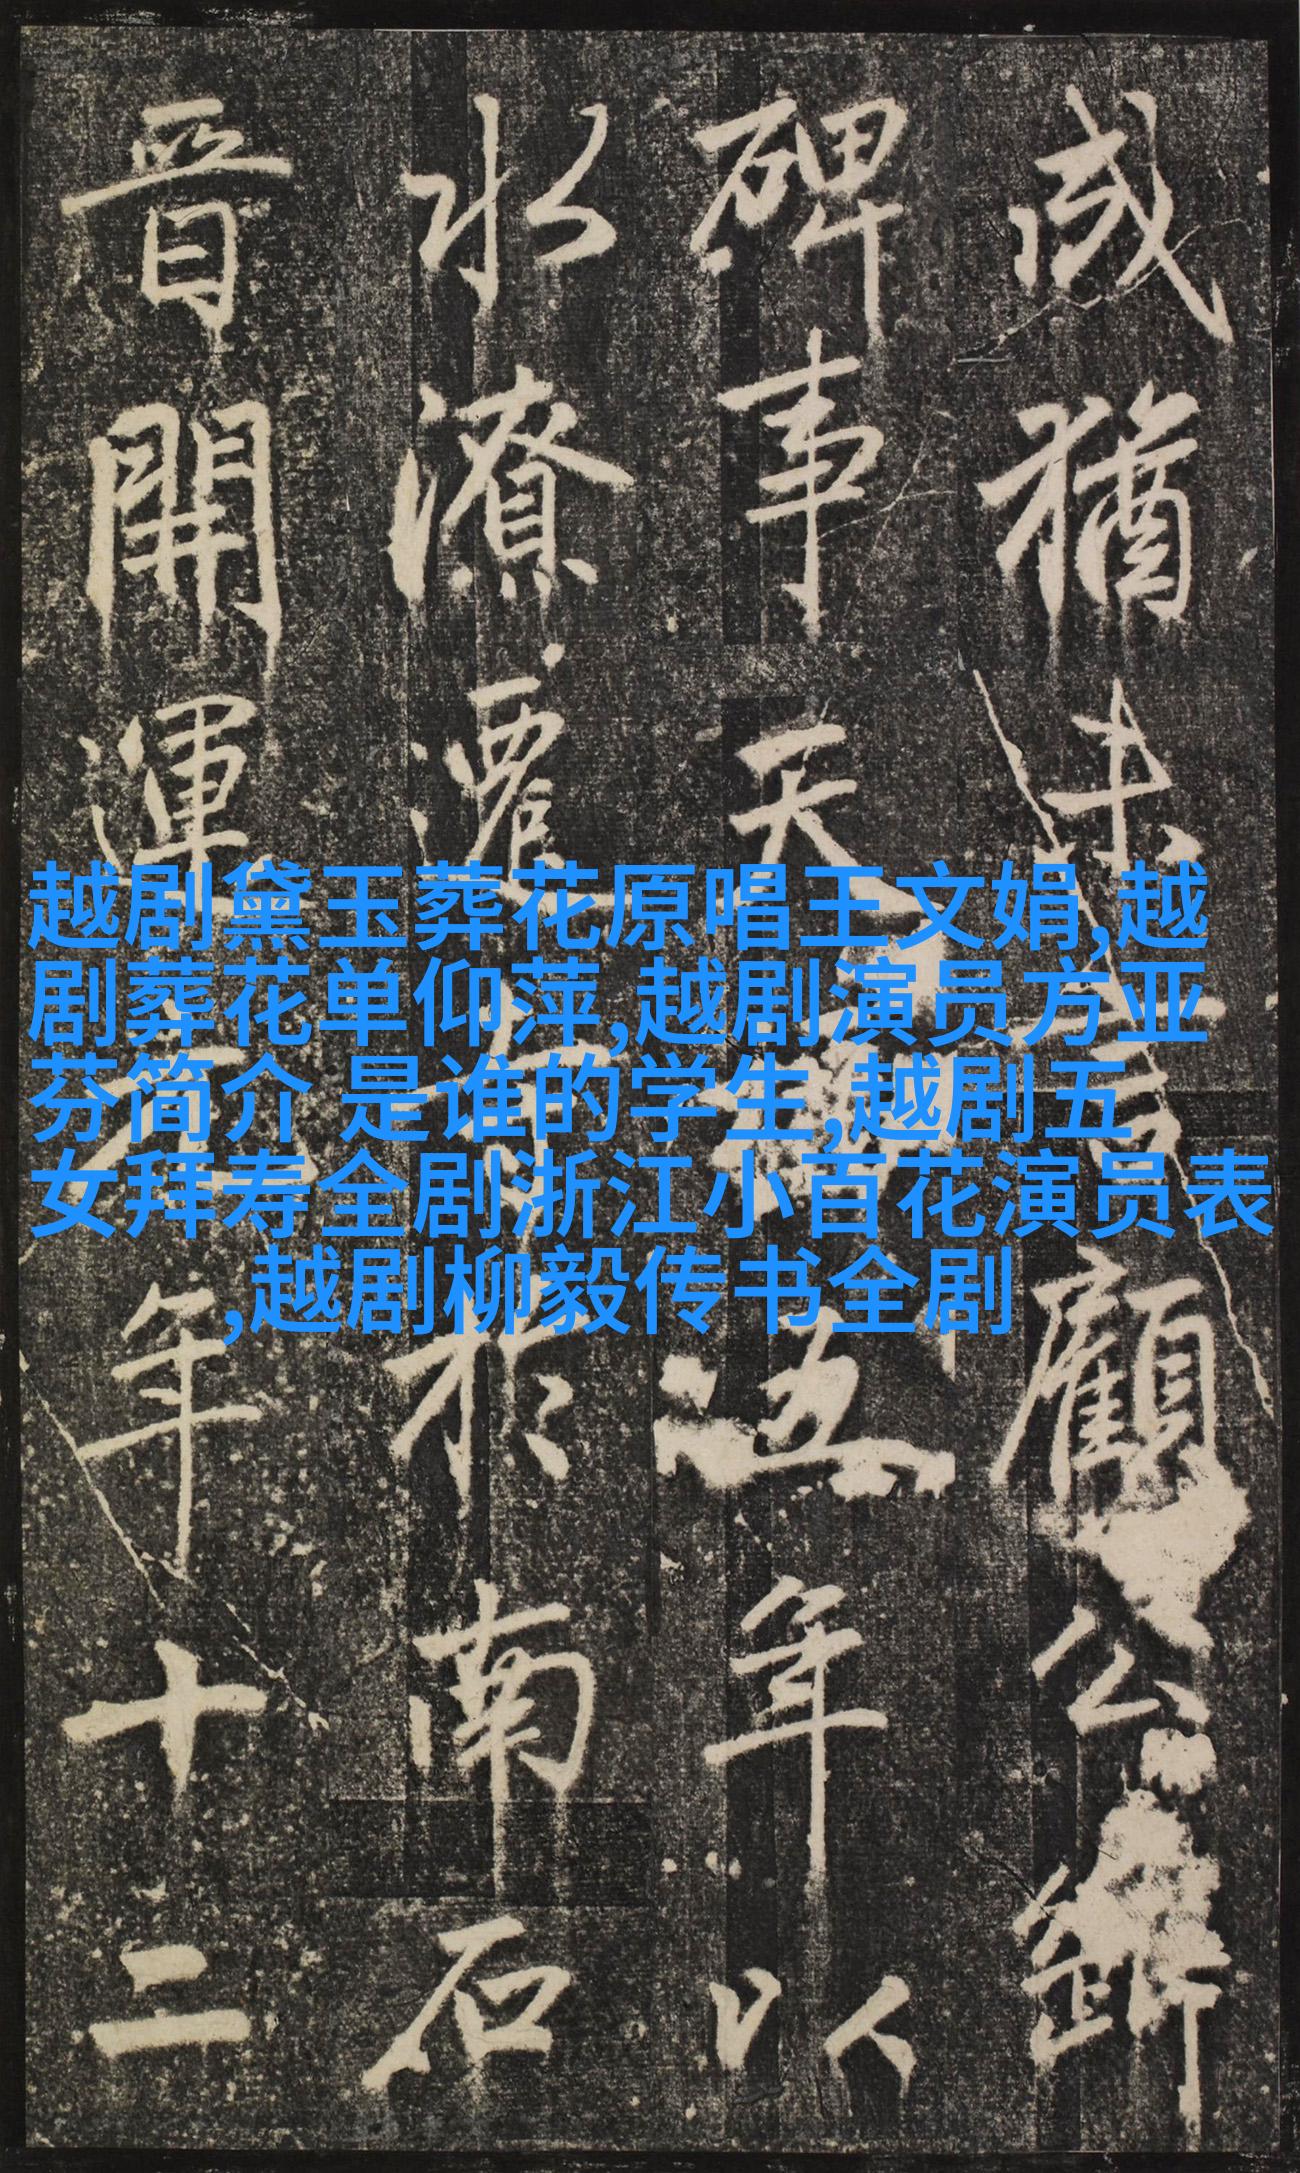 猶未顧公
碑事天五年以
水潦遷於南石
晉開運年十二
越剧黛玉葬花原唱王文娟,越
剧葬花单仰萍,越剧演员方亚
芬简介 是谁的学生,越剧五
女拜寿全剧浙江小百花演员表
,越剧柳毅传书全剧